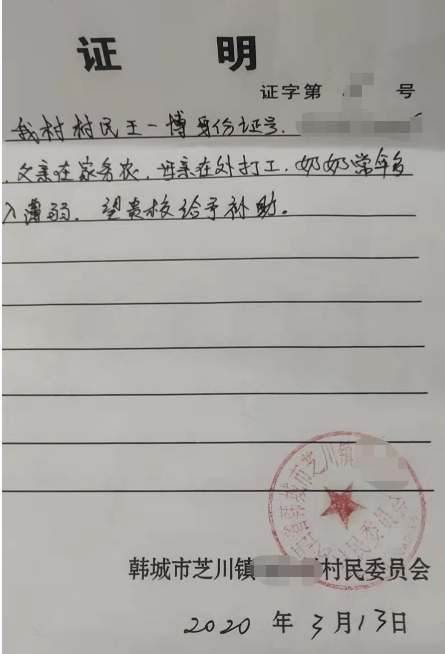 证 明
证字第 号
我村村民王一博身份证号.
.父亲在家务农,母亲在外打工,奶奶常年多
入薄弱.望贵校给予补助。
韩城市芝川镇
村民委员会
韩城市芝川镇 村民委员会
2020 年 3 月 13 日